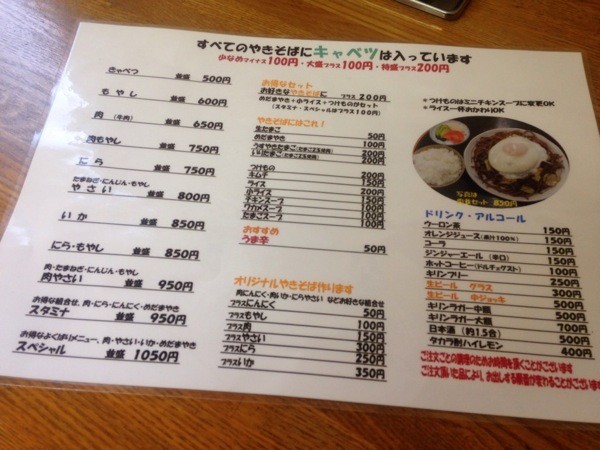 すべてのやきそばにキャベツは入っています
少なめマイナス100円・大盛プラス100円・特盛プラス200円
きゃべつ 並盛 500円
もやし 並盛 600円
肉 (牛肉) 並盛 650円
肉もやし 並盛 750円
にら 並盛 750円
たまねぎ・にんじん・もやし
やさい 並盛 800円
いか 並盛 850円
にら・もやし 並盛 850円
肉・たまねぎ・にんじん・もやし
肉やさい 並盛 950円
お得な組合せ、肉・にら・にんにく・めだまやき
スタミナ 並盛 950円
お得なよくばりメニュー、肉・やさい・いか・めだまやき
スペシャル 並盛 1050円
お得なセット
お好きなやきそばに プラス 200円
めだまやき+小ライス+つけものがセット
(スタミナ・スペシャルはプラス100円)
やきそばにはこれ!
生たまご 50円
めだまやき 100円
うすやきたまご(たまご2玉使用) 200円
いりたまご(たまご2玉使用) 200円
つけもの
キムチ 200円
ライス 150円
小ライス 100円
チキンスープ 100円
ワカメスープ 100円
たまごスープ 100円
おすすめ
うま辛 50円
オリジナルやきそば作ります
肉にんにく・肉いか・にらやさい などお好きな組合せ
プラスにんにく 50円
プラスもやし 100円
プラス肉 150円
プラスやさい 300円
プラスにら 250円
プラスいか 350円
*つけものはミニチキンスープに変更OK
*ライス一杯おかわりOK
写真は
830円
ドリンク・アルコール
ウーロン茶 150円
オレンジジュース(果汁100%) 150円
コーラ 150円
ジンジャーエール (辛口) 150円
ホットコーヒー(ドルチェグスト) 150円
キリンフリー 300円
生ビール グラス 250円
生ビール 中ジョッキ 300円
キリンラガー中瓶 500円
キリンラガー大瓶 700円
日本酒 (約1.5合) 500円
タカラ缶ハイレモン 400円
ご注文ごとの調理のためお時間を頂くことがございます
ご注文頂いた品により、お出しする順番が変わることがございます